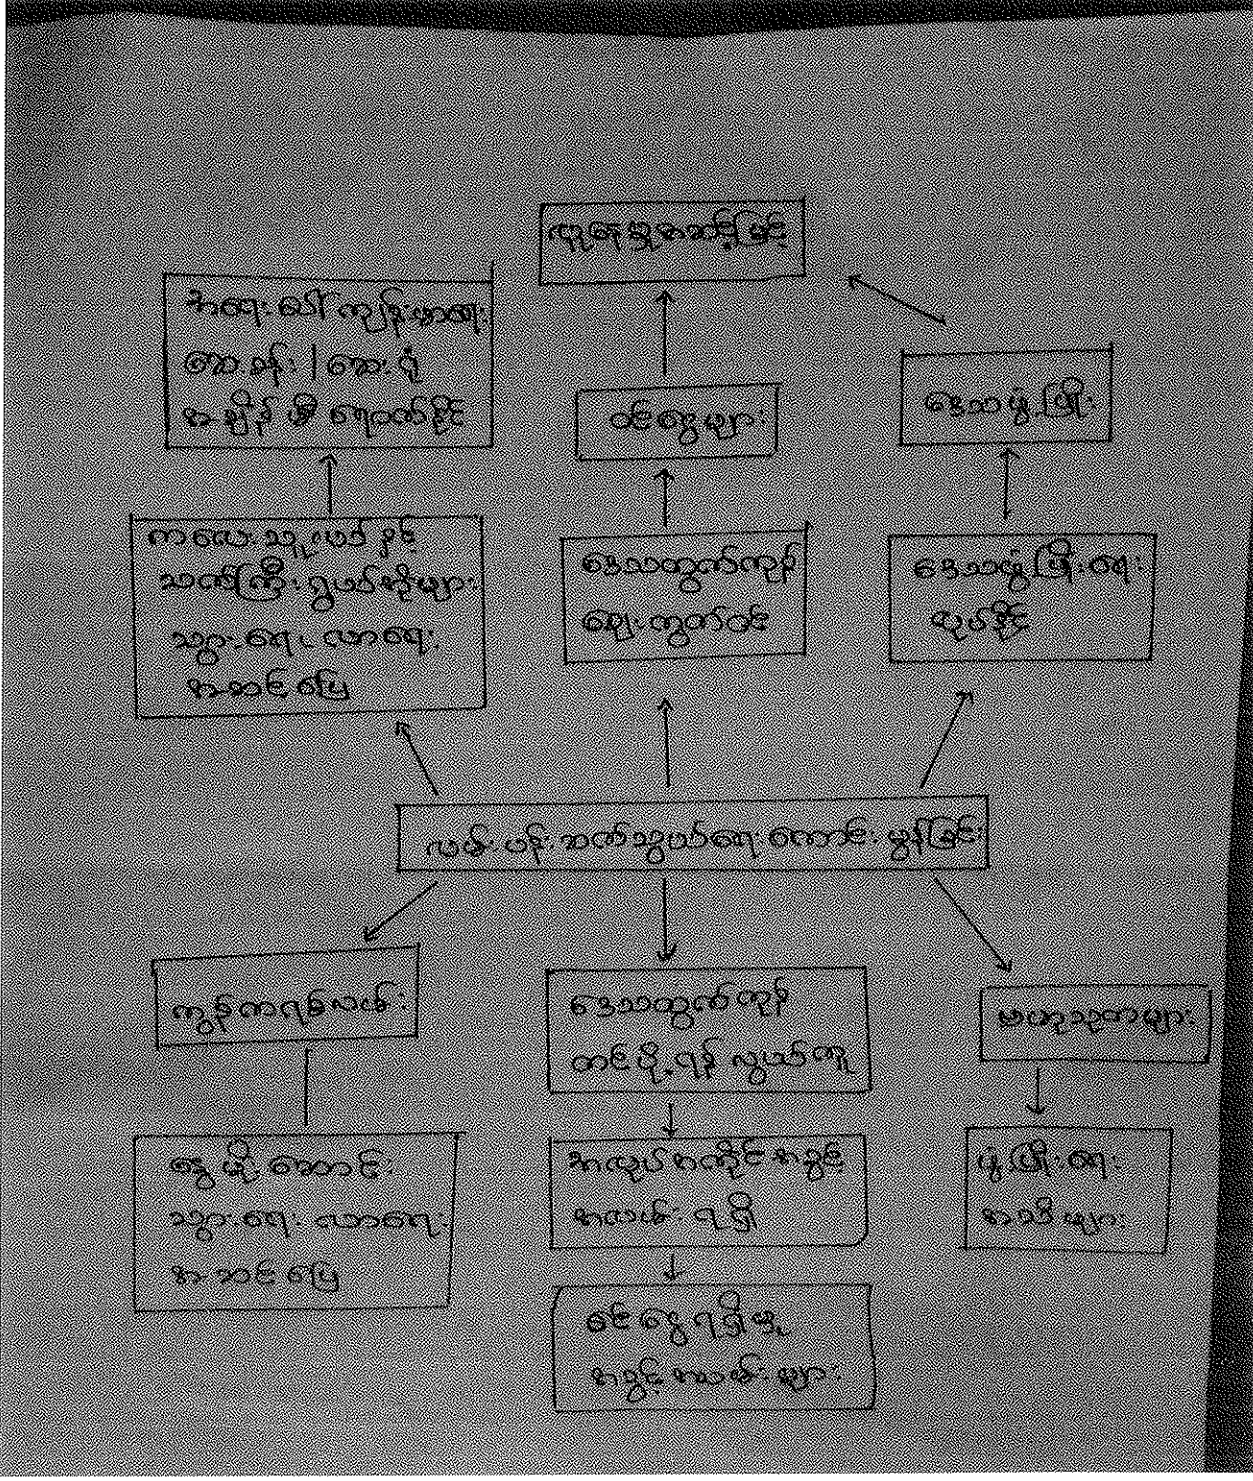 လူနေမှုအဆင့်မြင့်
အရေးပေါ် ကျန်းမာရေး
ဆေးခန်း | ဆေးရုံ
အချိန်မီ ရောက်နိုင်
ဝင်ငွေများ
ဒေသဖွံ့ဖြိုး
ကလေးသူငယ် နှင့်
သက်ကြီးရွယ်အိုများ
သွားရေး လာရေး
အဆင်ပြေ
ဒေသထွက်ကုန်
ဈေးကွက်ဝင်
ဒေသဖွံ့ဖြိုးရေး
လုပ်နိုင်
လမ်းပန်းဆက်သွယ်ရေး ကောင်းမွန်ခြင်း
ကွန်ကရစ်လမ်း
ဒေသထွက်ကုန်
တင်ပို့ရန် လွယ်ကူ
ဗဟုသုတများ
နွေ မိုး ဆောင်း
သွားရေး လာရေး
အဆင်ပြေ
အလုပ်အကိုင်အခွင့်
အလမ်း ရရှိ
ဖွံ့ဖြိုးရေး
အသိများ
ဝင်ငွေရရှိမှု
အခွင့်အလမ်းများ